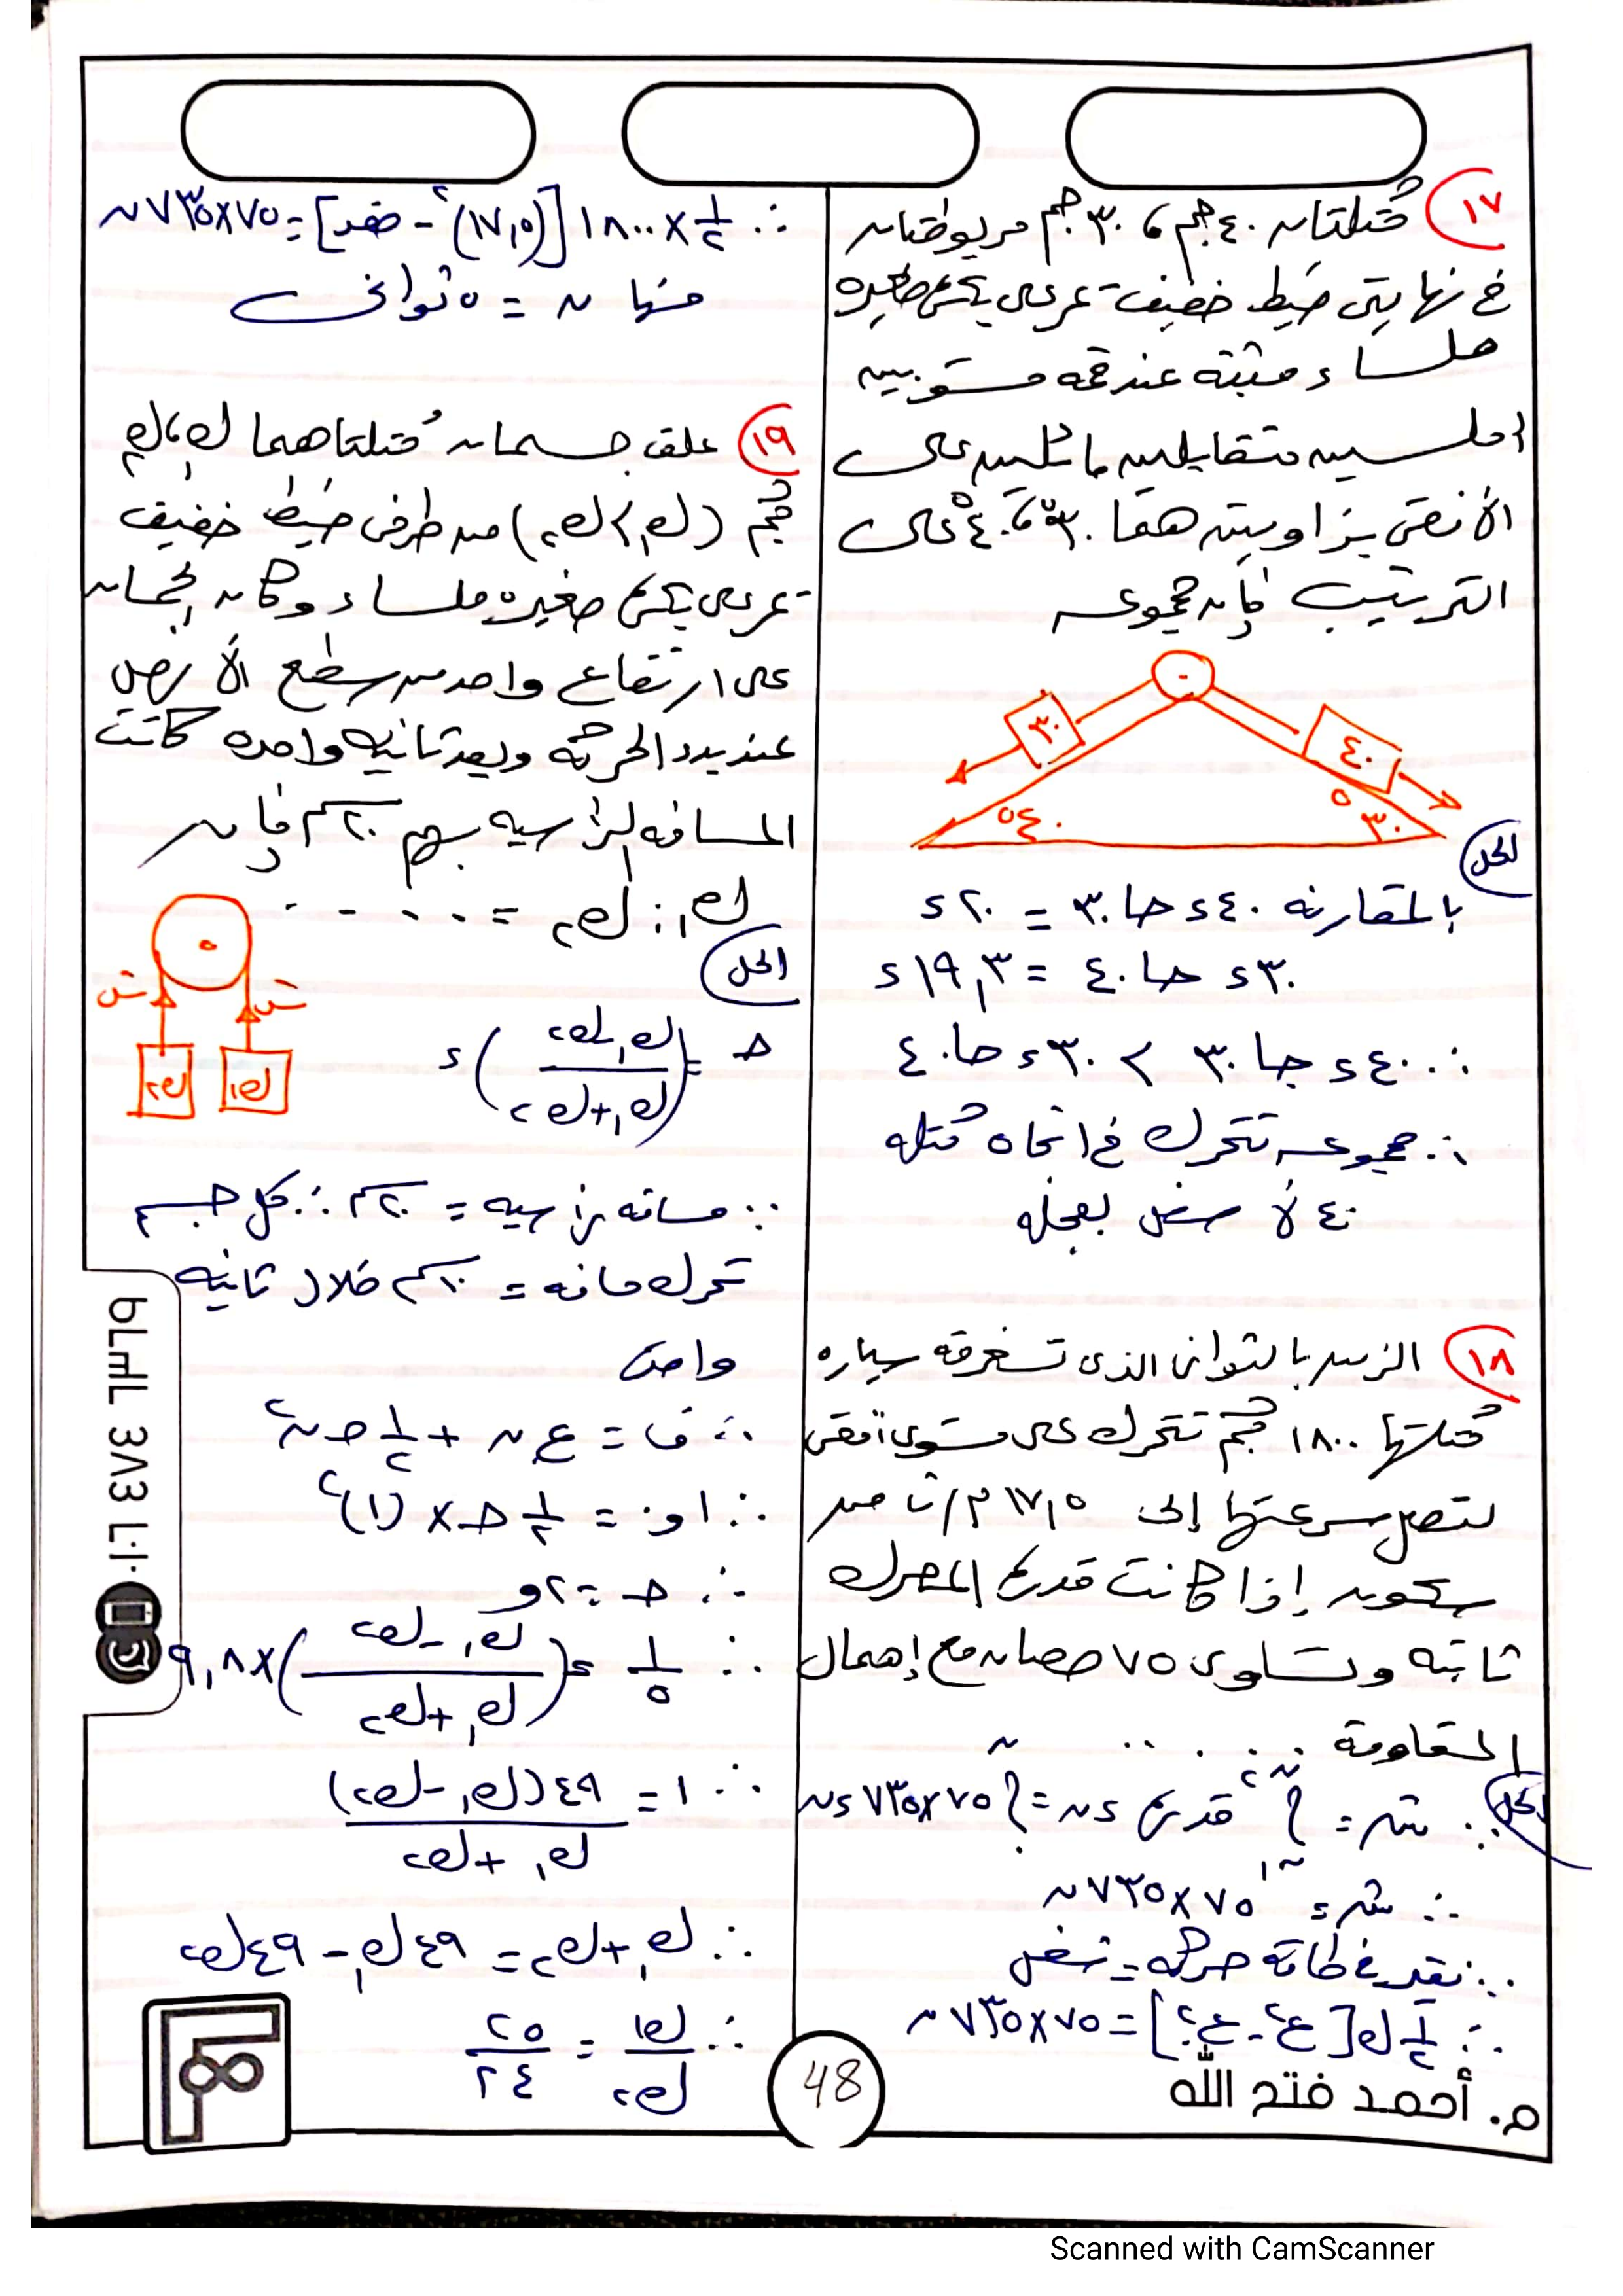 ١٧ كتلتان ٤٠ جم ، ٣٠ جم مربوطتان
في نهايتي خيط خفيف يمر على بكرة صغيرة
ملساء مثبته عند قمة مستويين
أملسين متقابلين مائلين على
الأفقي بزاويتين هما ٣٠° ، ٤٠° على
الترتيب فإن مجموعه
٣٠
٤٠
٤٠°
٣٠°
الحل
بالمقارنه ٤٠ء حا ٣٠ = ٢٠ء
٣٠ء حا ٤٠ = ١٩,٣ء
∴ ٤٠ء حا ٣٠ > ٣٠ء حا ٤٠
∴ مجموعه تتحرك في اتجاه كتله
٤٠ لأسفل بعجله
١٨ الزمن بالثواني الذي تستغرقه سياره
كتلتها ١٨٠٠ كجم تتحرك على مستوى أفقي
لتصل سرعتها إلى ١٧,٥ م/ث من
سكون إذا كانت قدرة المحرك
ثابته وتساوي ٧٥ حصان مع إهمال
المقاومة . . . . .
الحل
∵ شـ = ∫ قدرة ءن = ∫ ٧٥×٧٣٥ ءن
∴ شـ = ٧٥×٧٣٥ ن
∵ تغير في طاقة حركه = شغل
∴ ½ ك [ع² - ع.²] = ٧٥×٧٣٥ ن
∴ ½ × ١٨٠٠ [(١٧,٥)² - صفر] = ٧٥×٧٣٥ ن
منها ن = ٥ ثواني
١٩ علق جسمان كتلتاهما ك١ ، ك٢
كجم (ك١ > ك٢) من طرفي خيط خفيف
يمر على بكرة صغيره ملساء وكان الجسمان
على ارتفاع واحد من سطح الأرض
عند بدء الحركه وبعد ثانيه واحده كانت
المسافه الرأسيه بينهم ٢٠ سم فإن
ك١ : ك٢ = . . . .
الحل
شـ شـ
ك٢ ك١
حـ = (ك١ - ك٢ / ك١ + ك٢) ء
∵ مسافه رأسيه = ٢٠ سم ∴ كل جسم
تحرك مسافه = ١٠ سم خلال ثانيه
واحده
∴ ف = ع. ن + ½ حـ ن²
∴ ٠,١ = ½ حـ × (١)²
∴ حـ = ٠,٢
∴ ١/٥ = (ك١ - ك٢ / ك١ + ك٢) × ٩,٨
∴ ١ = ٤٩ (ك١ - ك٢) / ك١ + ك٢
∴ ك١ + ك٢ = ٤٩ ك١ - ٤٩ ك٢
∴ ك١ / ك٢ = ٢٥ / ٢٤
م. أحمد فتح الله
48
Scanned with CamScanner